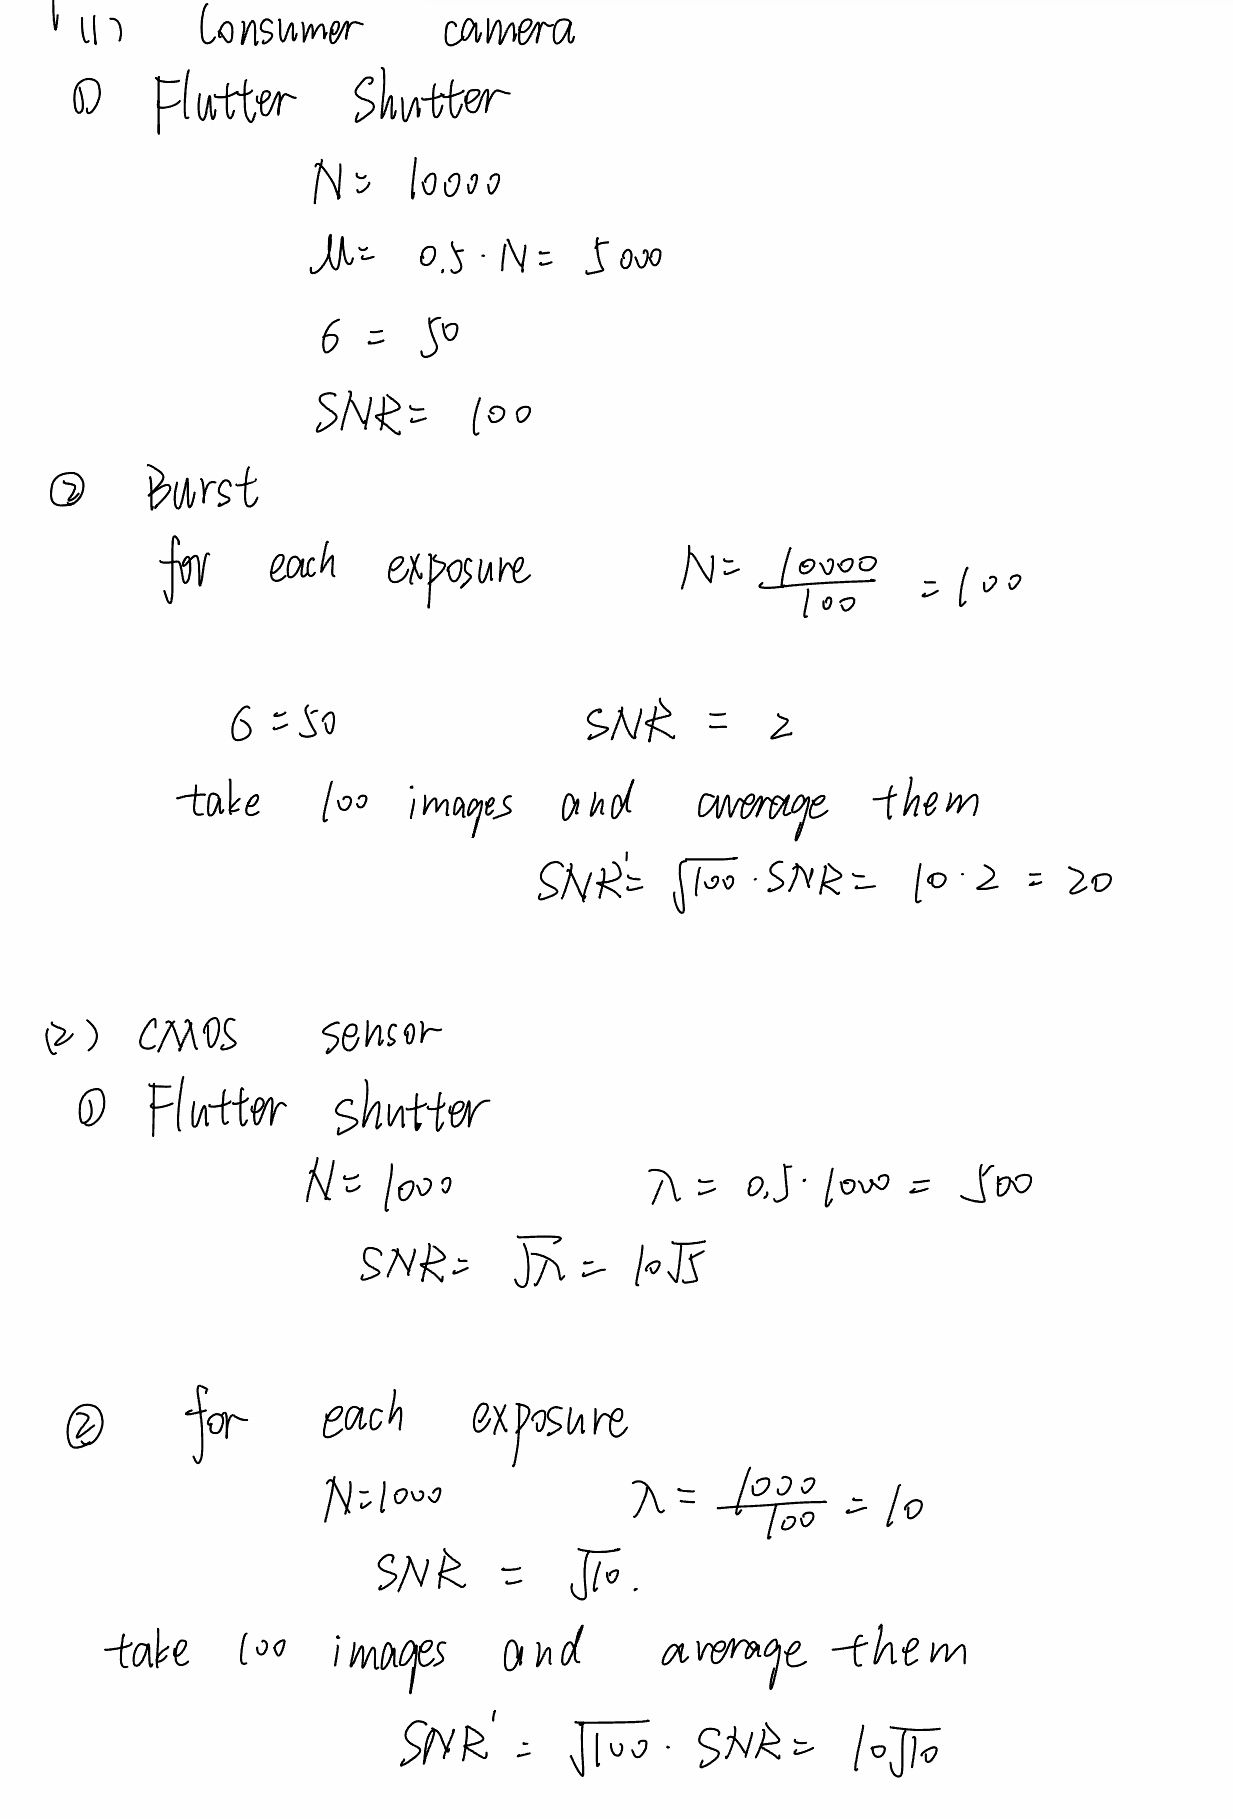 (1) Consumer camera
① Flutter Shutter
N= 10000
μ= 0.5 · N = 5000
6 = 50
SNR= 100
② Burst
for each exposure N= 10000/100 = 100
6 = 50 SNR = 2
take 100 images and average them
SNR'= √100 · SNR = 10 · 2 = 20
(2) CMOS sensor
① Flutter shutter
N= 1000 λ = 0.5 · 1000 = 500
SNR= √λ = 10√5
② for each exposure
N=1000 λ = 1000/100 = 10
SNR = √10.
take 100 images and average them
SNR' = √100 · SNR = 10√10